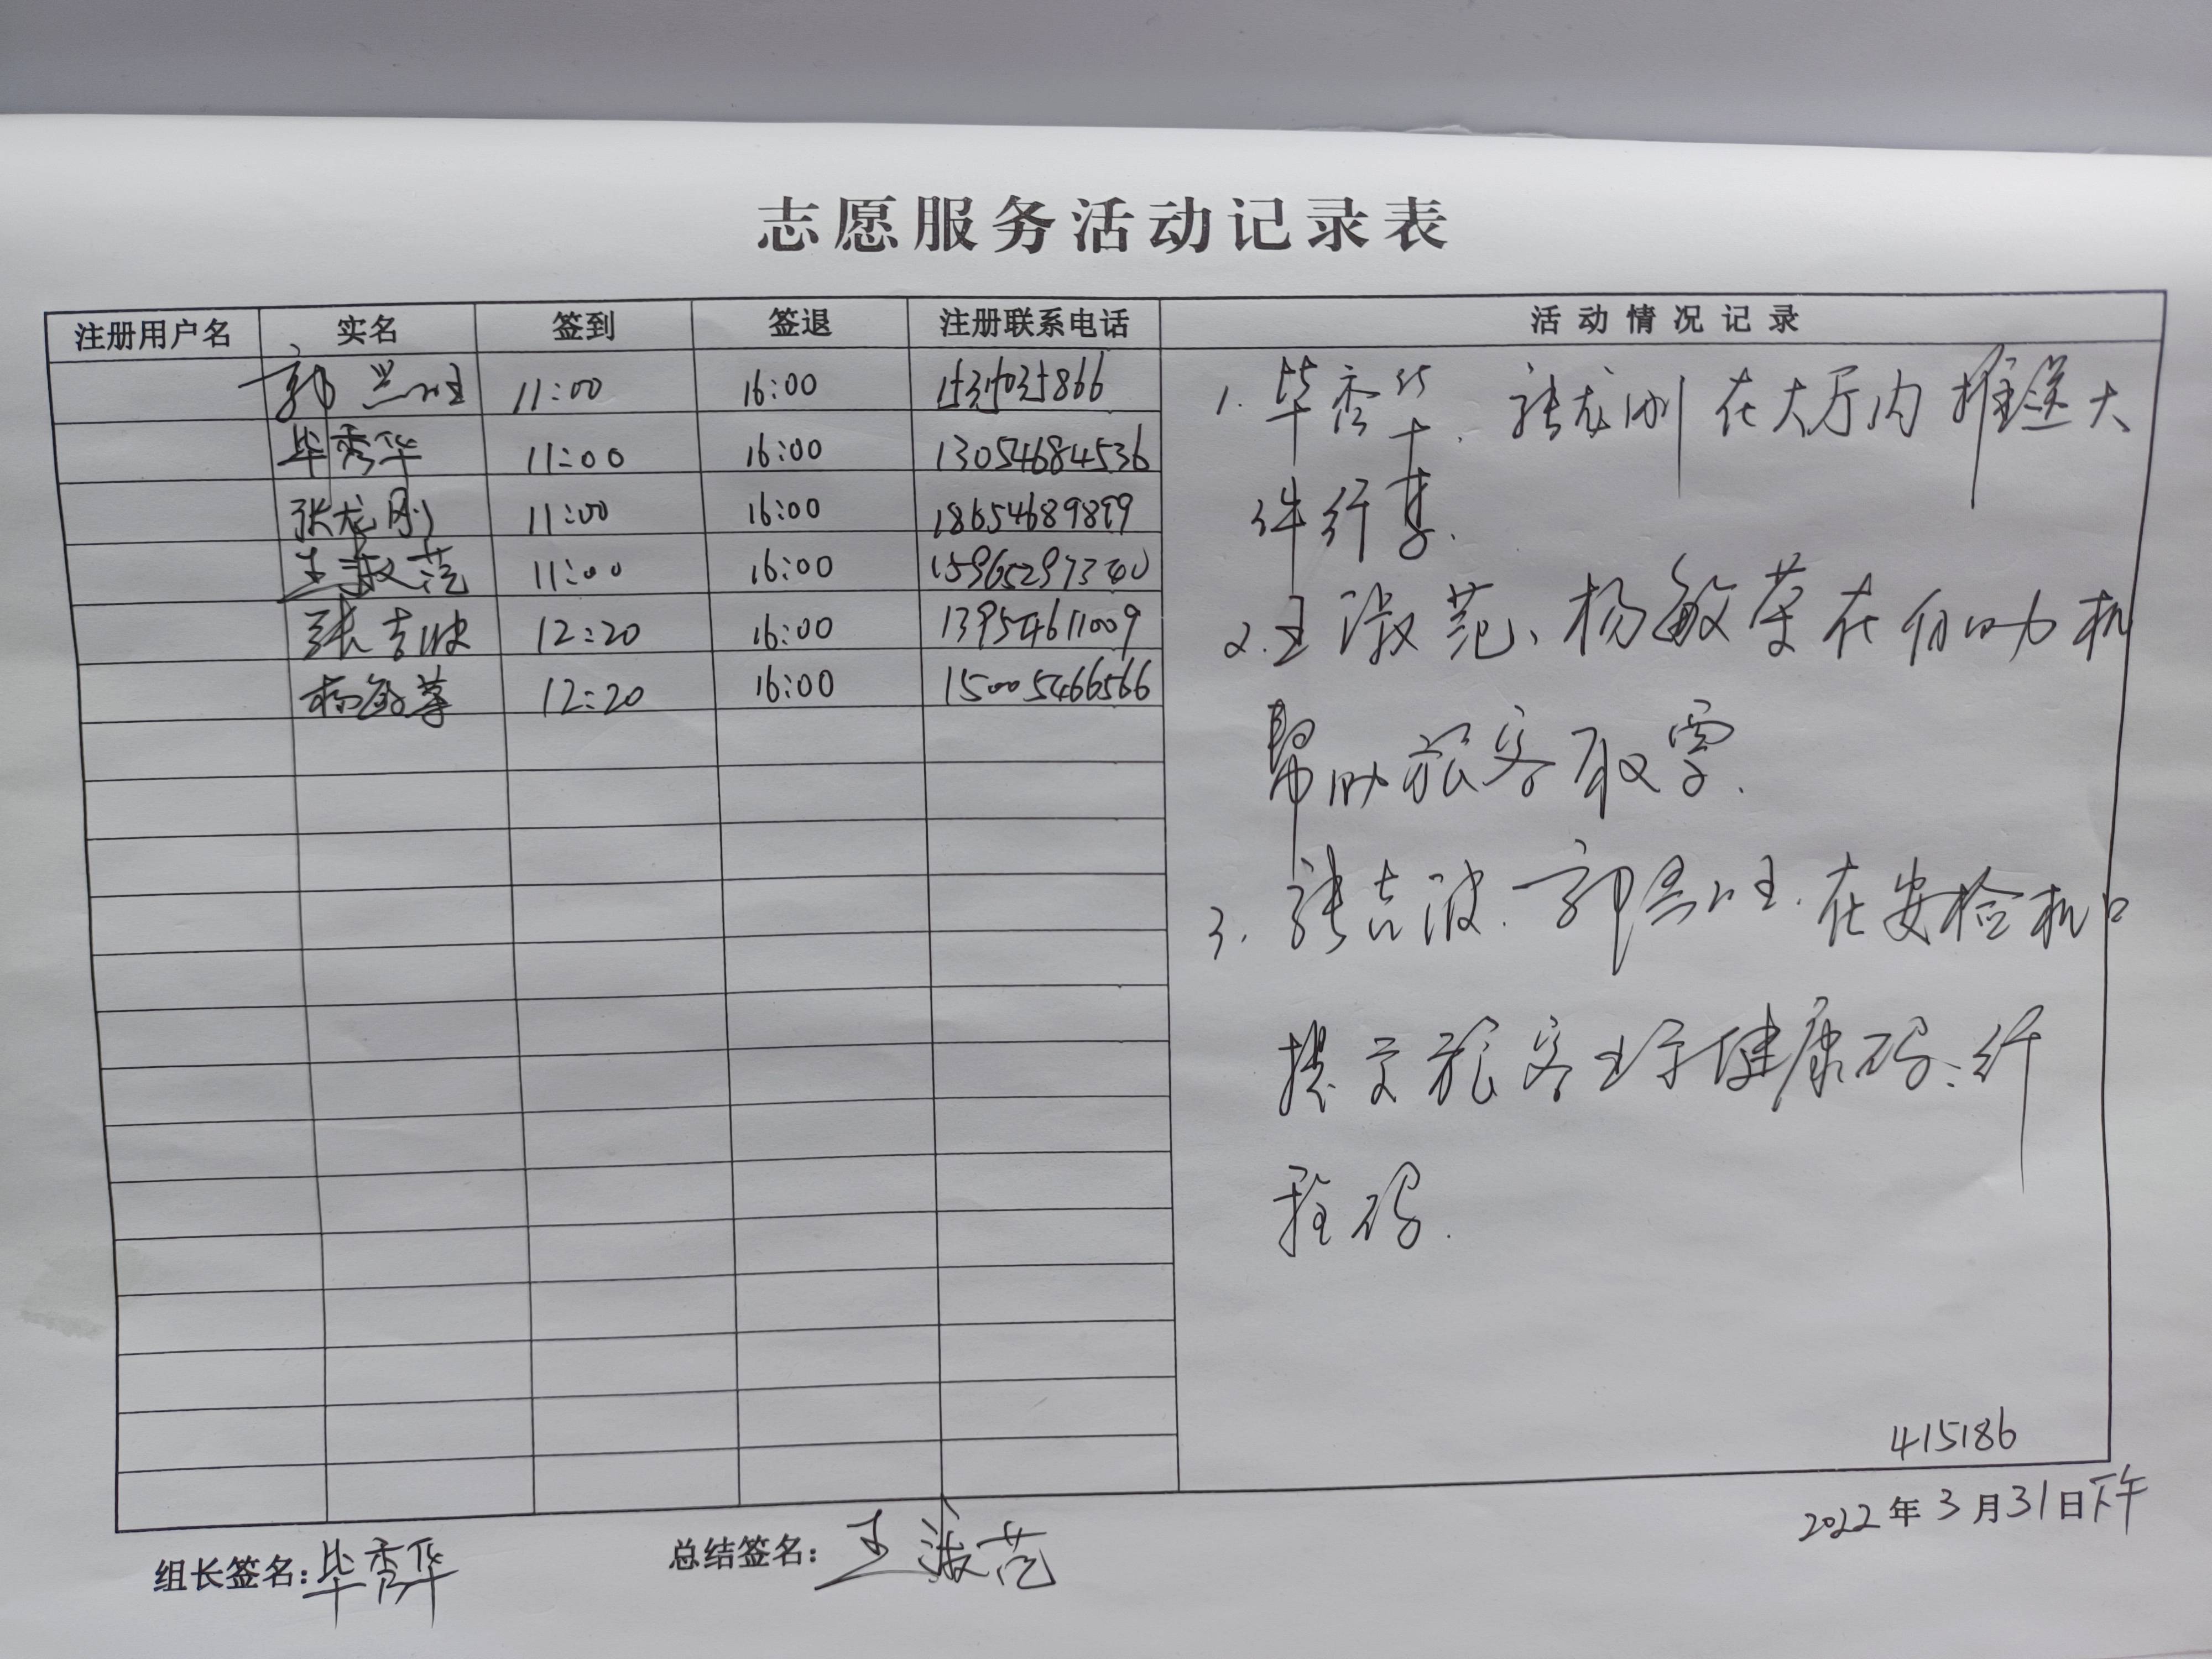 志愿服务活动记录表
注册用户名 实名 签到 签退 注册联系电话 活动情况记录
郭兰旺 11:00 16:00
毕秀华 11:00 16:00 13054684536
张龙刚 11:00 16:00 18654689899
王淑范 11:00 16:00 15965297340
张吉波 12:20 16:00 13954611009
杨敏 12:20 16:00 15005466566
1. 毕秀华、张龙刚在大厅内推送大
件行李.
2. 王淑范、杨敏在自助机
帮助旅客取票.
3. 张吉波、郭在安检机口
提旅客出示健康码、行
程码.
415186
2022年3月31日下午
组长签名:毕秀华 总结签名:王淑范